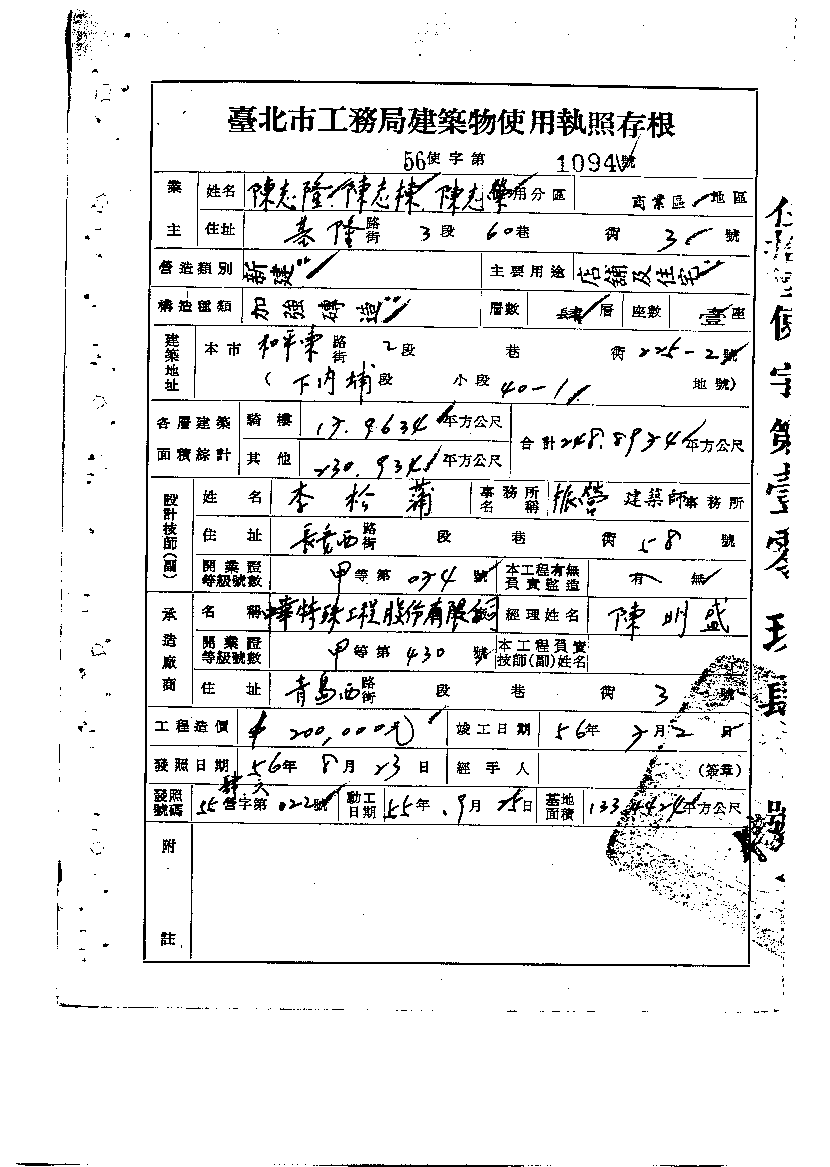 臺北市工務局建築物使用執照存根
56使字第 1094號
業主 姓名 陳志隆 陳志棟 陳志榮 使用分區 商業區 地區
住址 基隆路街 3段 60巷 街 3 號
營造類別 新建 主要用途 店舖及住宅
構造種類 加強磚造 層數 層 座數 壹座
建築地址 本市 和平東路街 2段 巷 街 225-2號
(下內埔段 小段 40-1 地號)
各層建築面積綜計 騎樓 17.9634平方公尺 合計 248.8974平方公尺
其他 230.934平方公尺
設計技師(副) 姓名 李松蒲 事務所名稱 振營 建築師事務所
住址 長安西路街 段 巷 街 58 號
開業證等級號數 甲等第 034號 本工程有無負責監造 有 無
承造廠商 名稱 中華特殊工程股份有限公司 經理姓名 陳明盛
開業證等級號數 甲等第 430 號 本工程負責技師(副)姓名
住址 青島西路街 段 巷 街 3 號
工程造價 $200,000元 竣工日期 56年 7月 2日
發照日期 56年 8月 23日 經手人 (簽章)
發照號碼 55營字第 022號 動工日期 55年 9月 25日 基地面積 133.4424平方公尺
附註
使字第壹零玖肆號